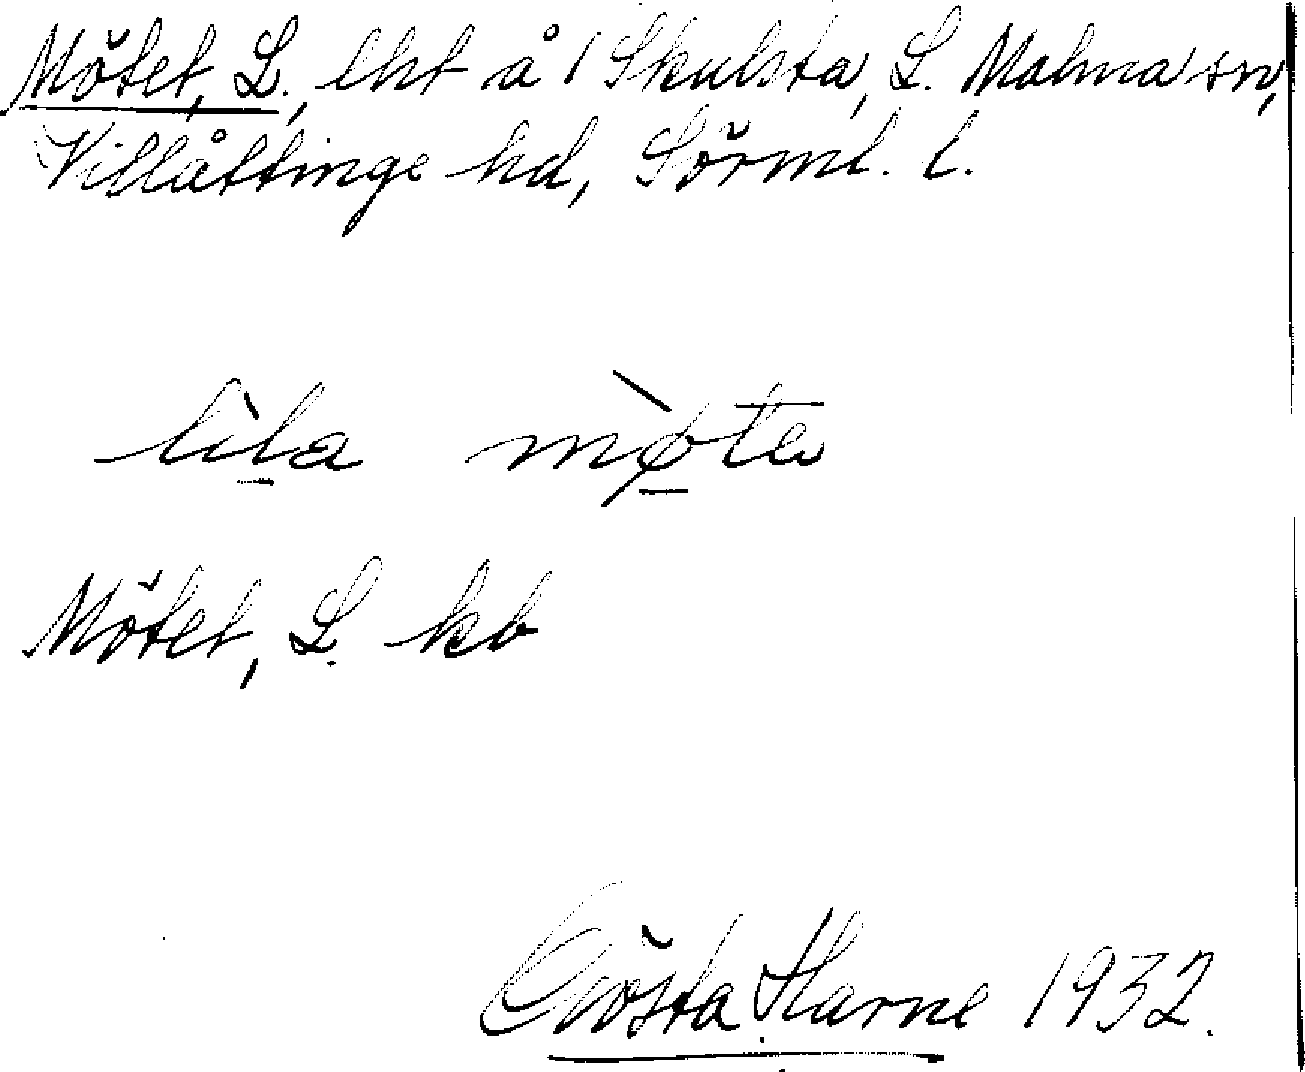 Mötet, L., lht å 1 Skulsta, L. Malma sn,
Villåttinge hd, Sörml. l.
lìla mø̀te
Mötet, L. kb
Gösta Harne 1932.